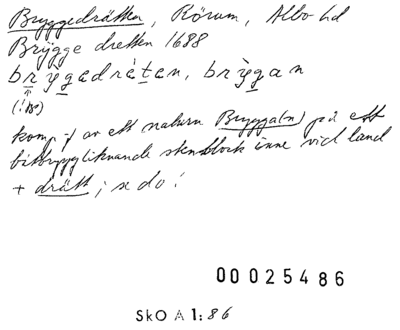 Bryggedrätten, Rörum, Albo hd
Brÿgge dretten 1688
brỳgadrätan, brỳgan
(!BO)
komp. av ett naturn Brygga(n) på ett
båtbryggliknande stenblock inne vid land
+ drätt; se do!
00025486
SkO A 1:86